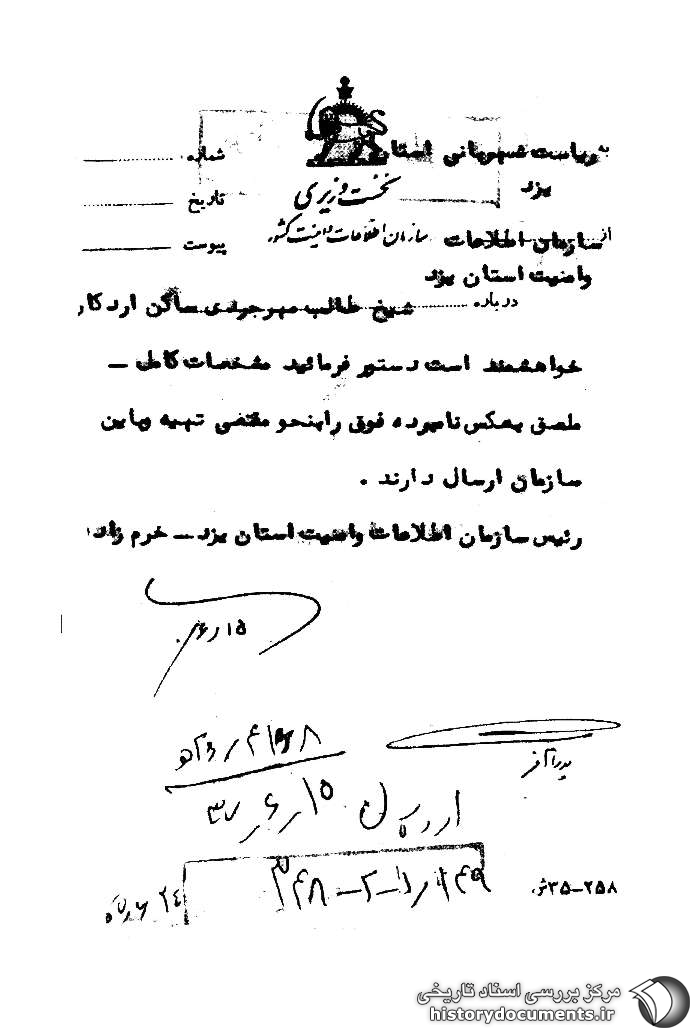 به ریاست شهربانی استان
یزد
نخست وزیری
سازمان اطلاعات و امنیت کشور
شماره
تاریخ
پیوست
از سازمان اطلاعات
وامنیت استان یزد
درباره شیخ طالب مهرجردی ساکن اردکان
خواهشمند است دستور فرمائید مشخصات کامل –
ملصق بعکس نامبرده فوق رابنحو مقتضی تهیه وباین
سازمان ارسال دارند .
رئیس سازمان اطلاعات وامنیت استان یزد – خرم زاده
۱۵ر۶
۳۵-۲۵۸
مرکز بررسی اسناد تاریخی
historydocuments.ir